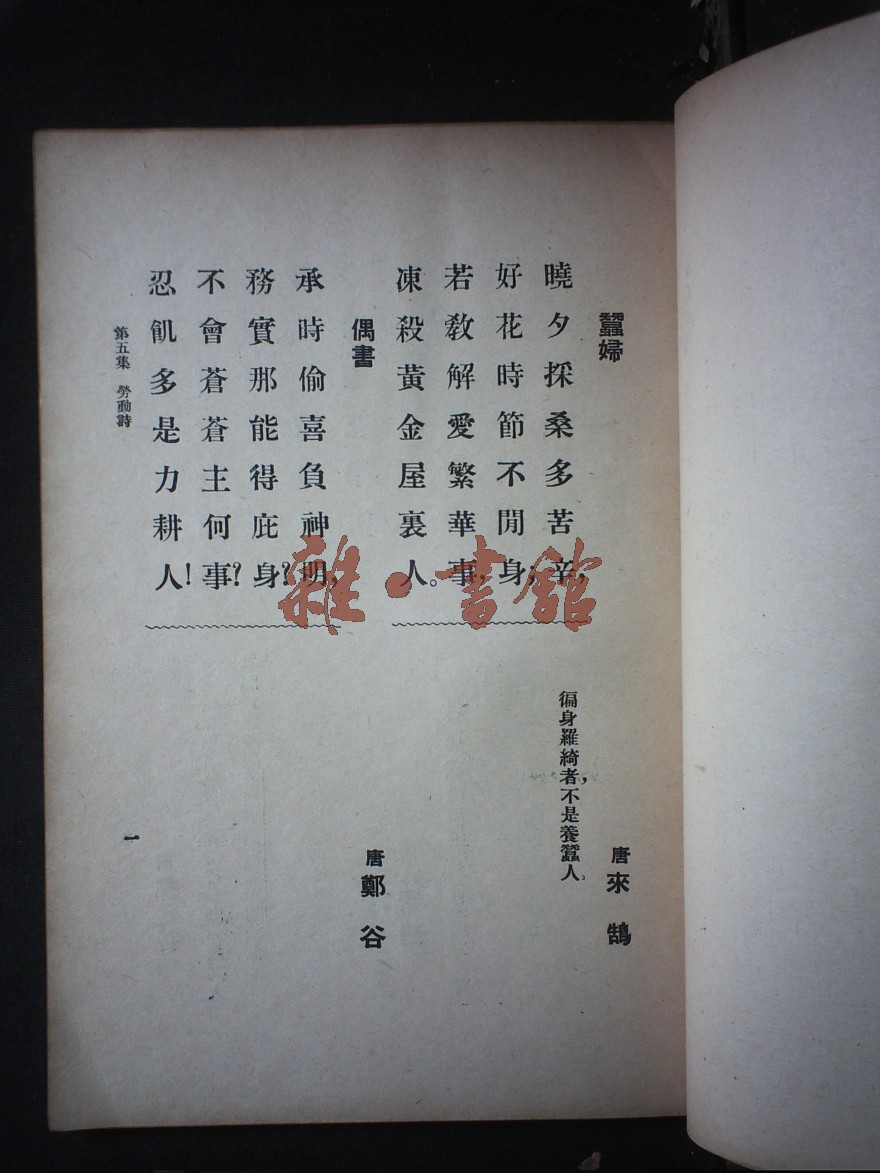 蠶婦
唐 來 鵠
曉夕採桑多苦辛，
好花時節不閒身；
若敎解愛繁華事，
凍殺黃金屋裏人。
徧身羅綺者，不是養蠶人。
偶書
唐 鄭 谷
承時偷喜負神明，
務實那能得庇身？
不會蒼蒼主何事？
忍飢多是力耕人！
第五集 勞動詩
一
雜·書館